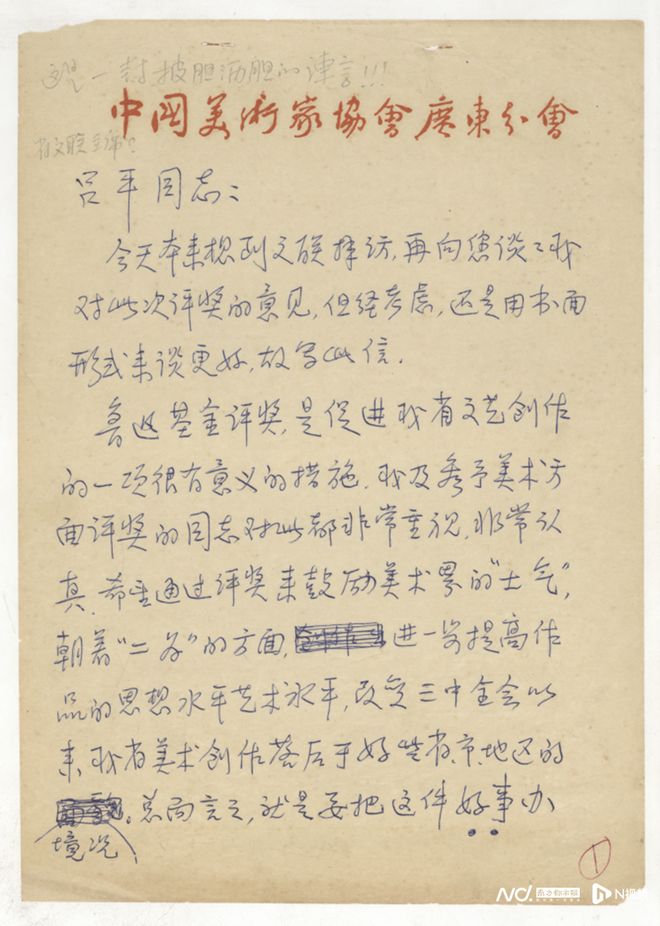 这是一封披胆沥胆的谏言!!!
中国美術家協會廣東分會
省文联主席?
吕平同志:
今天本来想到文联拜访,再向您谈谈我
对此次评奖的意见,但经考虑,还是用书面
形式来谈更好,故写此信.
鲁迅基金评奖,是促进我省文艺创作
的一项很有意义的措施.我及参予美术方
面评奖的同志对此都非常重视,非常认
真,希望通过评奖来鼓励美术界的"士气",
朝着"二为"的方面,进一步提高作
品的思想水平艺术水平,改变三中全会以
来,我省美术创作落后于好些省、市、地区的
境况.总而言之,就是要把这件好事办
①
N视频